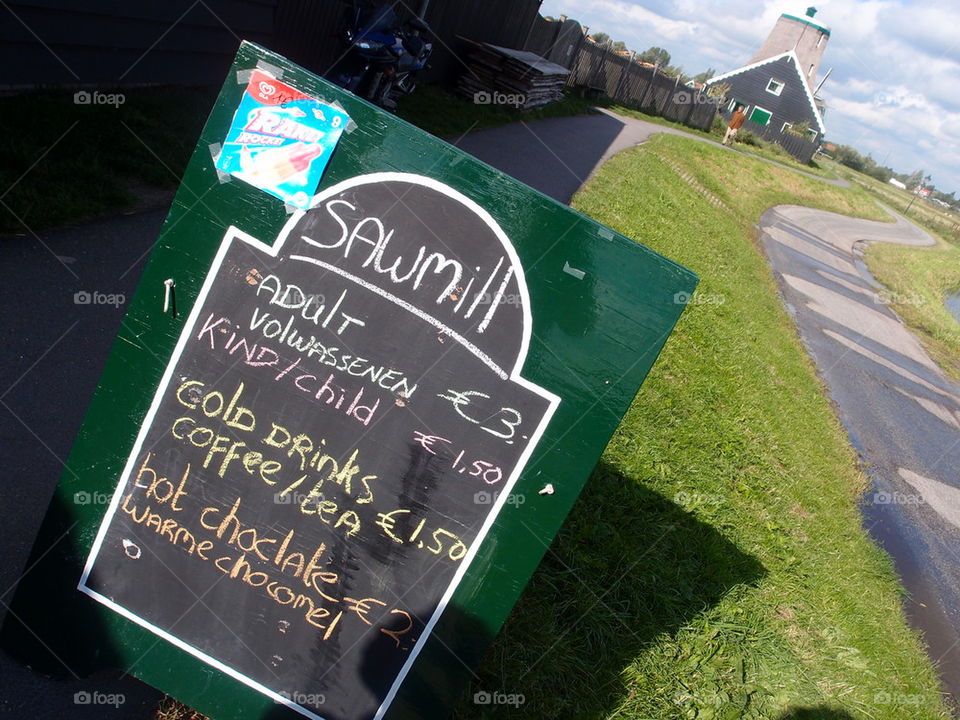 RAKET
ROCKET
SAWmill
ADULT
VOLWASSENEN €3.
KIND/child €1,50
COLD DRINKS
COFFEE/tea €1,50
hot choclate
WARME chocomel €2.